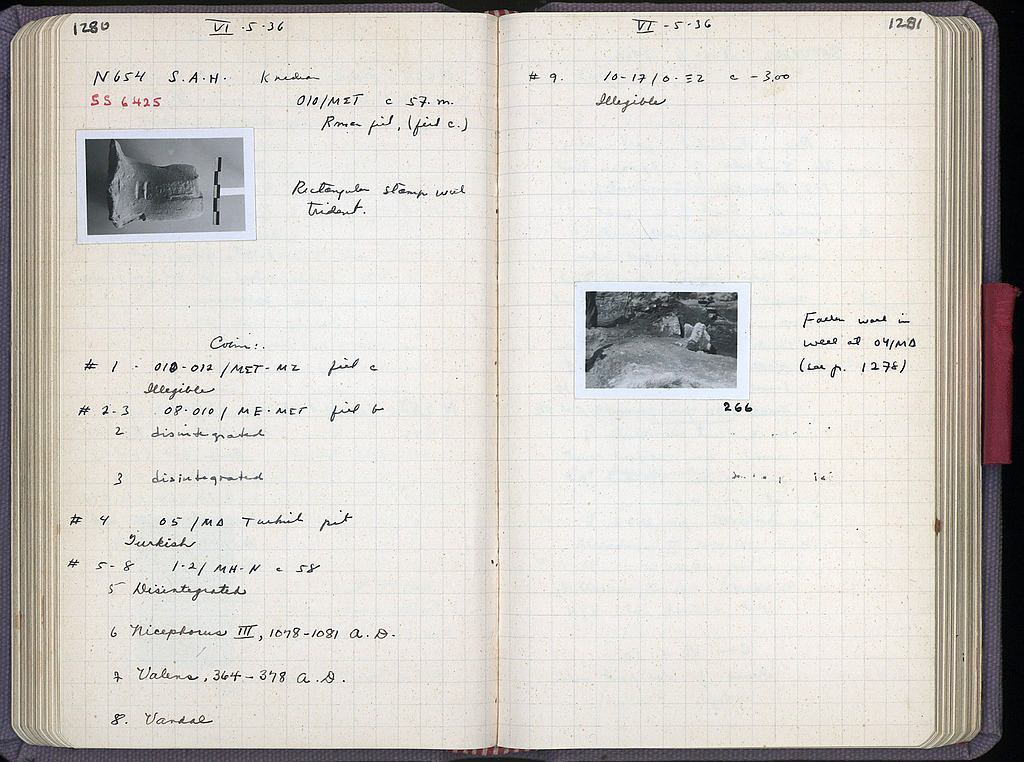 1280
VI - 5 - 36
N 654 S.A.H. Knidian
SS 6425
010/MET c 57. m.
Roman fill, (fill c.)
Rectangular stamp with
trident.
Coins:
# 1 - 010-012 / MET-MZ fill c
Illegible
# 2-3 08-010 / ME-MET fill b
2 disintegrated
3 disintegrated
# 4 05 / MΔ Turkish pit
Turkish
# 5-8 1-2 / MH-N c 58
5 Disintegrated
6 Nicephorus III, 1078-1081 A.D.
7 Valens, 364-378 A.D.
8. Vandal
VI - 5 - 36
1281
# 9. 10-17 / 0-Ξ2 c -3.00
Illegible
Fallen wall in
well at 04/MΔ
(see p. 1278)
266